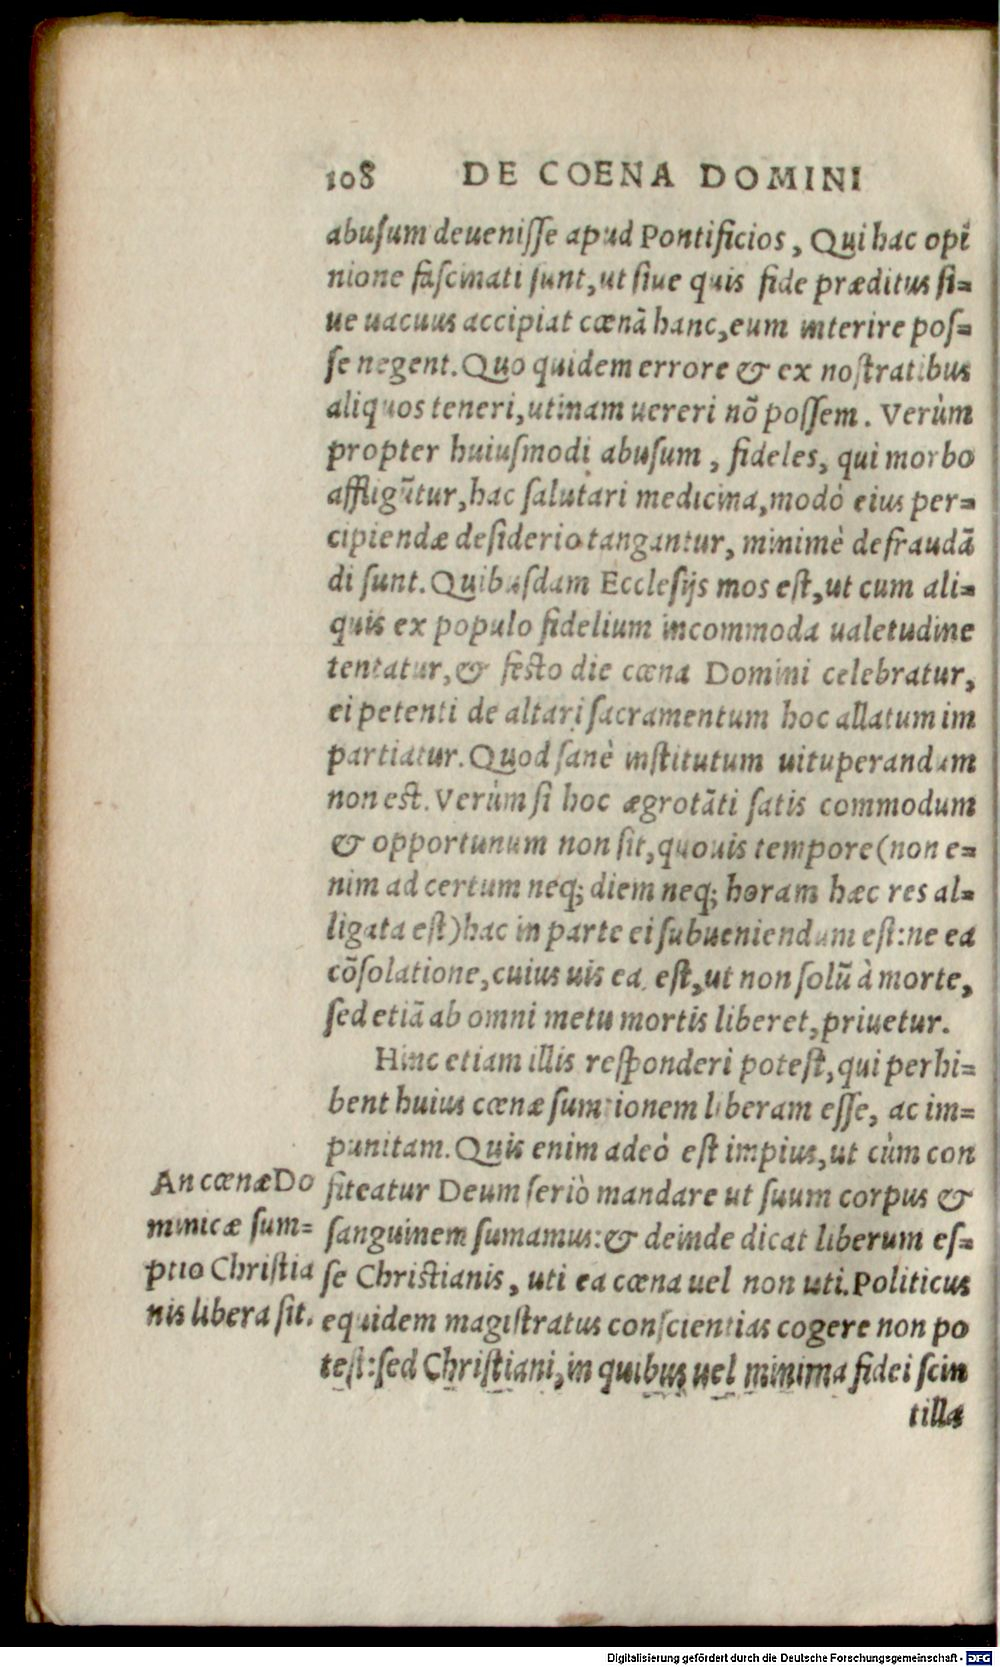 108 DE COENA DOMINI
abusum deuenisse apud Pontificios, Qui hac opi
nione fascinati sunt, ut siue quis fide præditus si=
ue uacuus accipiat cœnã hanc, eum interire pos=
se negent. Quo quidem errore & ex nostratibus
aliquos teneri, utinam uereri nõ possem. Verùm
propter huiusmodi abusum, fideles, qui morbo
affligũtur, hac salutari medicina, modò eius per=
cipiendæ desiderio tangantur, minimè defraudã
di sunt. Quibusdam Ecclesijs mos est, ut cum ali=
quis ex populo fidelium incommoda ualetudine
tentatur, & festo die cœna Domini celebratur,
ei petenti de altari sacramentum hoc allatum im
partiatur. Quod sanè institutum uituperandum
non est. Verùm si hoc ægrotãti satis commodum
& opportunum non sit, quouis tempore (non e=
nim ad certum neq; diem neq; horam hæc res al=
ligata est) hac in parte ei subueniendum est: ne ea
cõsolatione, cuius uis ea est, ut non solũ à morte,
sed etiã ab omni metu mortis liberet, priuetur.
Hinc etiam illis responderi potest, qui perhi=
bent huius cœnæ sumtionem liberam esse, ac im=
punitam. Quis enim adeò est impius, ut cùm con
fiteatur Deum seriò mandare ut suum corpus &
sanguinem sumamus: & deinde dicat liberum es=
se Christianis, uti ea cœna uel non uti. Politicus
equidem magistratus conscientias cogere non po
test: sed Christiani, in quibus uel minima fidei scin
tillæ
An cœnæ Do
minicæ sum=
ptio Christia
nis libera sit.
Digitalisierung gefördert durch die Deutsche Forschungsgemeinschaft - DFG